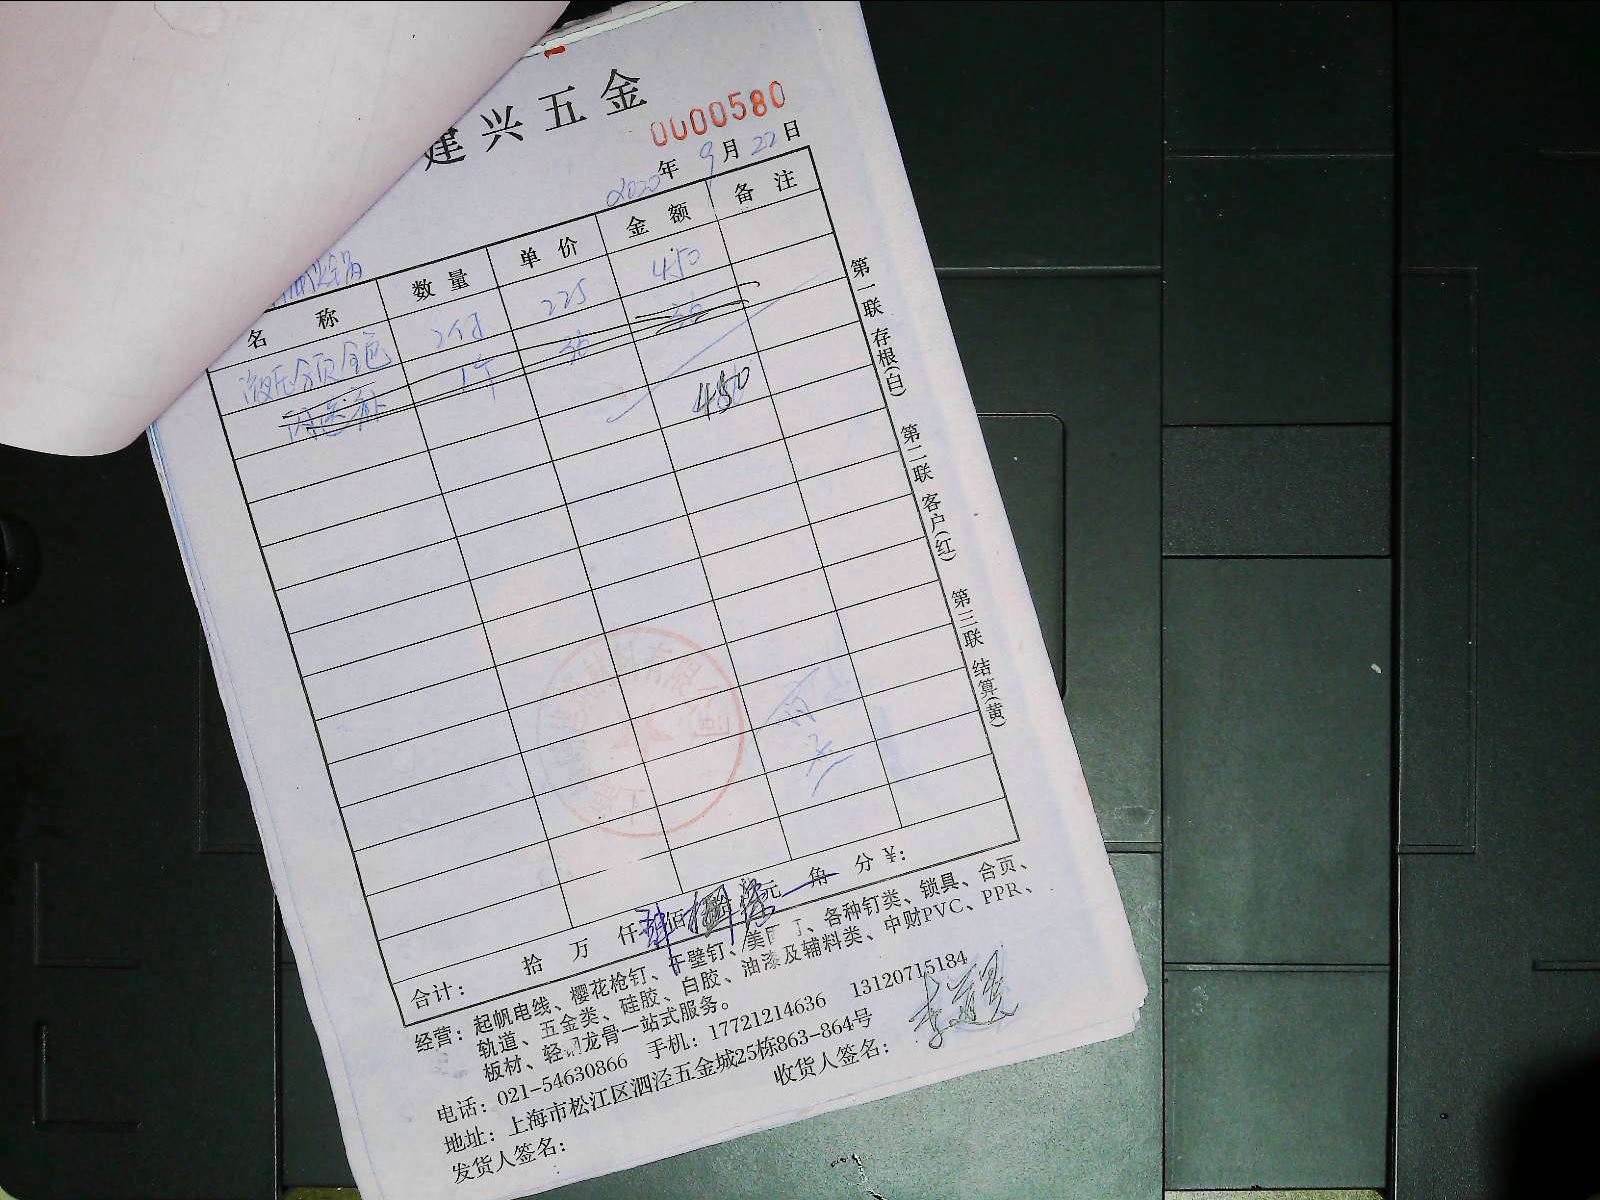 建兴五金
0000580
2020年 9月 22日
名 称 数 量 单 价 金 额 备 注
2付 225 450
1个 36 36
450
第一联 存根(白) 第二联 客户(红) 第三联 结算(黄)
合计: 拾 万 仟 佰 元 角 分 ¥:
经营: 起帆电线、樱花枪钉、干壁钉、美 钉、各种钉类、锁具、合页、
轨道、五金类、硅胶、白胶、油漆及辅料类、中财PVC、PPR、
板材、轻钢龙骨一站式服务。
电话: 021-54630866 手机: 17721214636 13120715184
地址: 上海市松江区泗泾五金城25栋863-864号
发货人签名: 收货人签名: